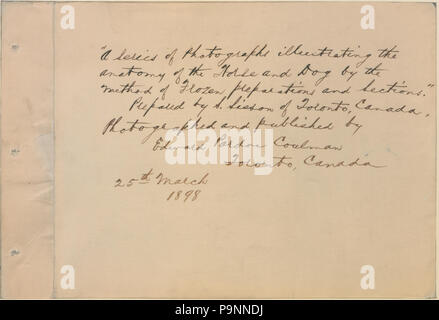 "A series of Photographs illustrating the
anatomy of the Horse and Dog by the
method of Frozen preparations and sections."
Prepared by S. Sisson of Toronto, Canada.
Photographed and published by
Edward Perdon Coulman
Toronto, Canada
25th March
1898
alamy
a
a
a
alamy
P9NNDJ